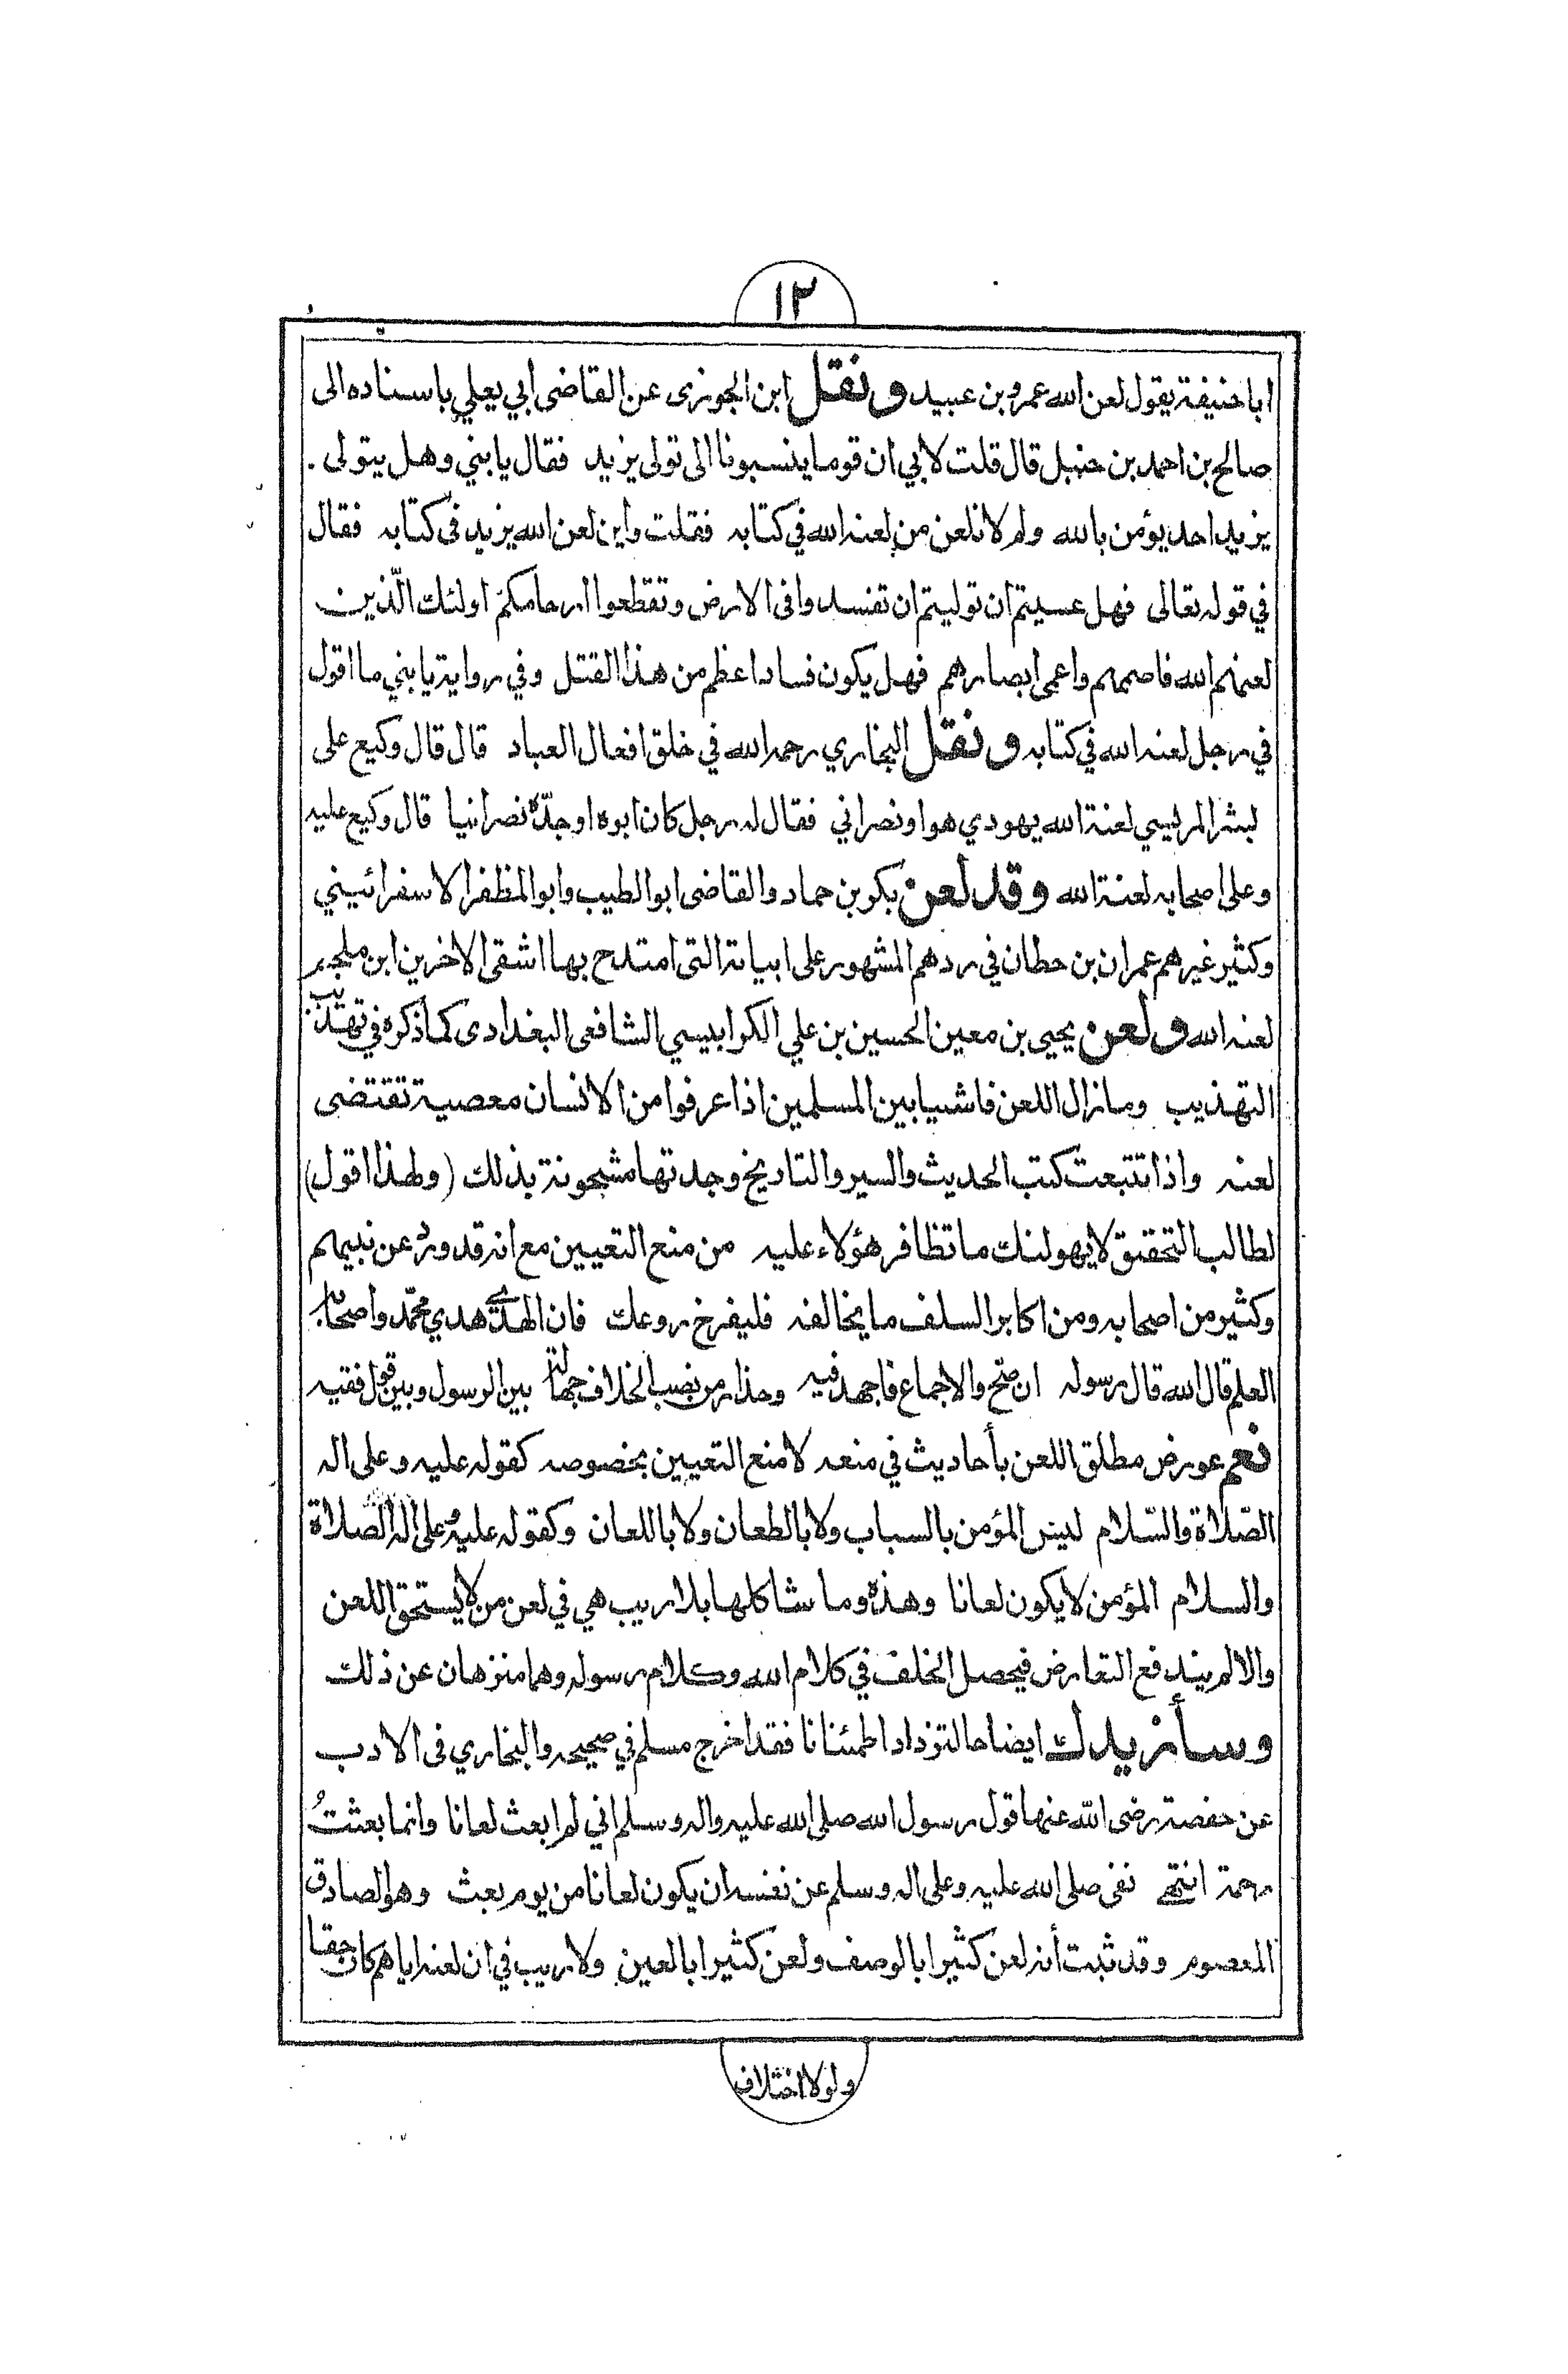 ١٢
ابا حنيفة يقول لعن الله عمرو بن عبيد ونقل ابن الجوزى عن القاضى ابي يعلي باسناده الى
صالح بن احمد بن حنبل قال قلت لابي ان قوما ينسبونا الى تولى يزيد فقال يا بني وهل يتولى
يزيد احد يؤمن بالله ولم لا نلعن من لعنه الله في كتابه فقلت واين لعن الله يزيد فى كتابه فقال
في قوله تعالى فهل عسيتم ان توليتم ان تفسدوا فى الارض وتقطعوا ارحامكم اولئك الّذين
لعنهم الله فاصمهم واعمى ابصارهم فهل يكون فساد اعظم من هذا القتل وفي رواية يا بني ما اقول
في رجل لعنه الله في كتابه ونقل البخاري رحمه الله في خلق افعال العباد قال قال وكيع على
بشر المريسي لعنة الله يهودي هو او نصراني فقال له رجل كان ابوه او جدّه نصرانيا قال وكيع عليه
وعلى اصحابه لعنة الله وقد لعن بكر بن حماد والقاضى ابو الطيب وابو المظفر الاسفرائيني
وكثير غيرهم عمران بن حطان في ردهم المشهور على ابياته التى امتدح بها اشقى الاخرين ابن ملجم
لعنه الله ولعن يحيى بن معين الحسين بن علي الكرابيسي الشافعى البغدادى كما ذكره في تهذيب
التهذيب وما زال اللعن فاشيا بين المسلمين اذا عرفوا من الانسان معصية تقتضى
لعنه واذا تتبعت كتب الحديث والسير والتاريخ وجدتها مشحونة بذلك (ولهذا اقول)
لطالب التحقيق لا يهولنك ما تظافر هؤلاء عليه من منع التعيين مع انه قد ورد عن نبيهم
وكثير من اصحابه ومن اكابر السلف ما يخالفه فليفرخ روعك فان الهدى هدي محمّد واصحابه
العلم قال الله قال رسوله ان صح والاجماع فاجهد فيه وحذار من نصب الخلاف جهالة بين الرسول وبين قول فقيه
نعم عورض مطلق اللعن بأحاديث في منعه لا منع التعيين بخصوصه كقوله عليه وعلى اله
الصّلاة والسّلام ليس المؤمن بالسباب ولا بالطعان ولا باللعان وكقوله عليه وعلى اله الصّلاة
والسلام المؤمن لا يكون لعانا وهذه وما شاكلها بلا ريب هي في لعن من لا يستحق اللعن
والا لم يندفع التعارض فيحصل الخلف في كلام الله وكلام رسوله وهما منزهان عن ذلك
وسأزيدك ايضاحا لتزداد اطمئنانا فقد اخرج مسلم في صحيحه والبخاري فى الادب
عن حفصة رضى الله عنها قول رسول الله صلى الله عليه واله وسلم اني لم ابعث لعانا وانما بعثتُ
رحمة انتهى نفى صلى الله عليه وعلى اله وسلم عن نفسه ان يكون لعانا من يوم بعث وهو الصادق
المعصوم وقد ثبت أنه لعن كثيرا بالوصف ولعن كثيرا بالعين ولا ريب في ان لعنه اياهم كان حقا
ولولا اختلاف